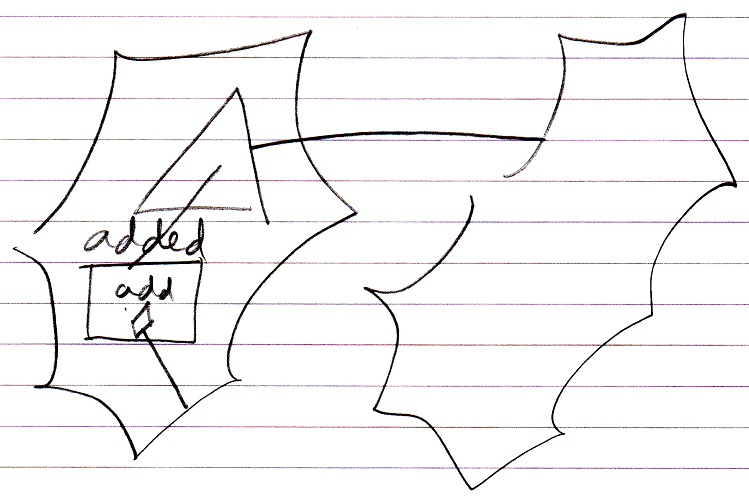 added
add